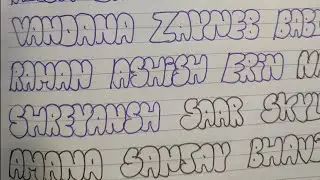 VANDANA ZAYNEB
RAMAN ASHISH ERIN
SHREYANSH SAAR
AMANA SANJAY